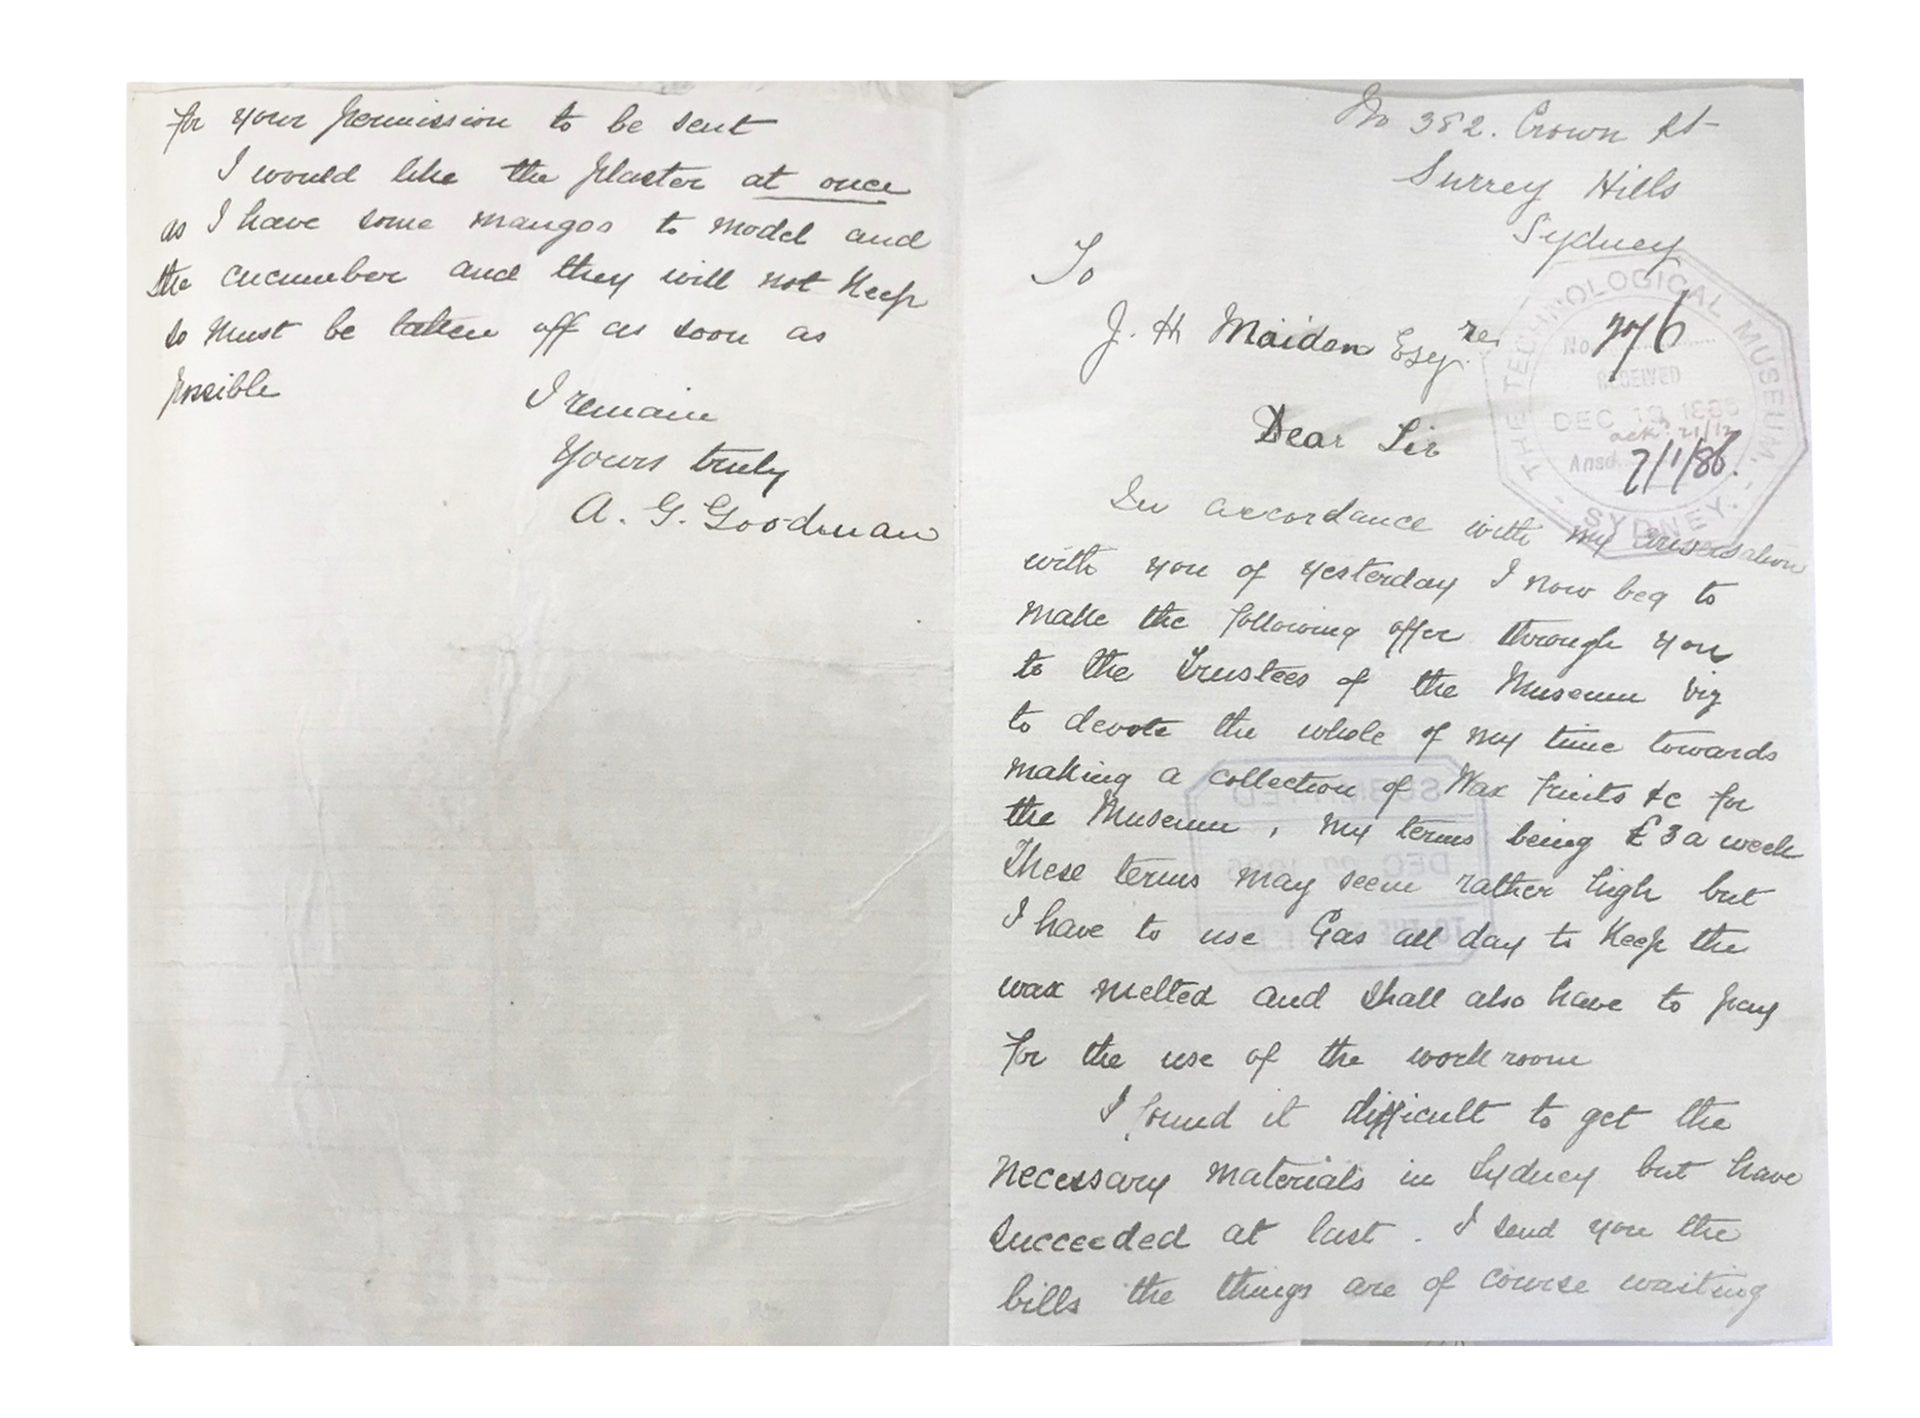 No 382. Crown St
Surrey Hills
Sydney
To
J. H Maiden Esqre
THE TECHNOLOGICAL MUSEUM.
SYDNEY.
No
RECEIVED
DEC 19 1885
ack. 21/12
Ansd. 7/1/86.
Dear Sir
In accordance with my conversation
with you of yesterday I now beg to
make the following offer through you
to the Trustees of the Museum viz
to devote the whole of my time towards
making a collection of Wax fruits &c for
the Museum, my terms being £3 a week
These terms may seem rather high but
I have to use Gas all day to keep the
wax melted and shall also have to pay
for the use of the work room
I found it difficult to get the
necessary materials in Sydney but have
succeeded at last. I send you the
bills the things are of course waiting
for your permission to be sent
I would like the plaster at once
as I have some mangos to model and
the cucumber and they will not keep
so must be taken off as soon as
possible
I remain
Yours truly
A. G. Goodman
SUBMITTED
DEC 22 1885
TO THE